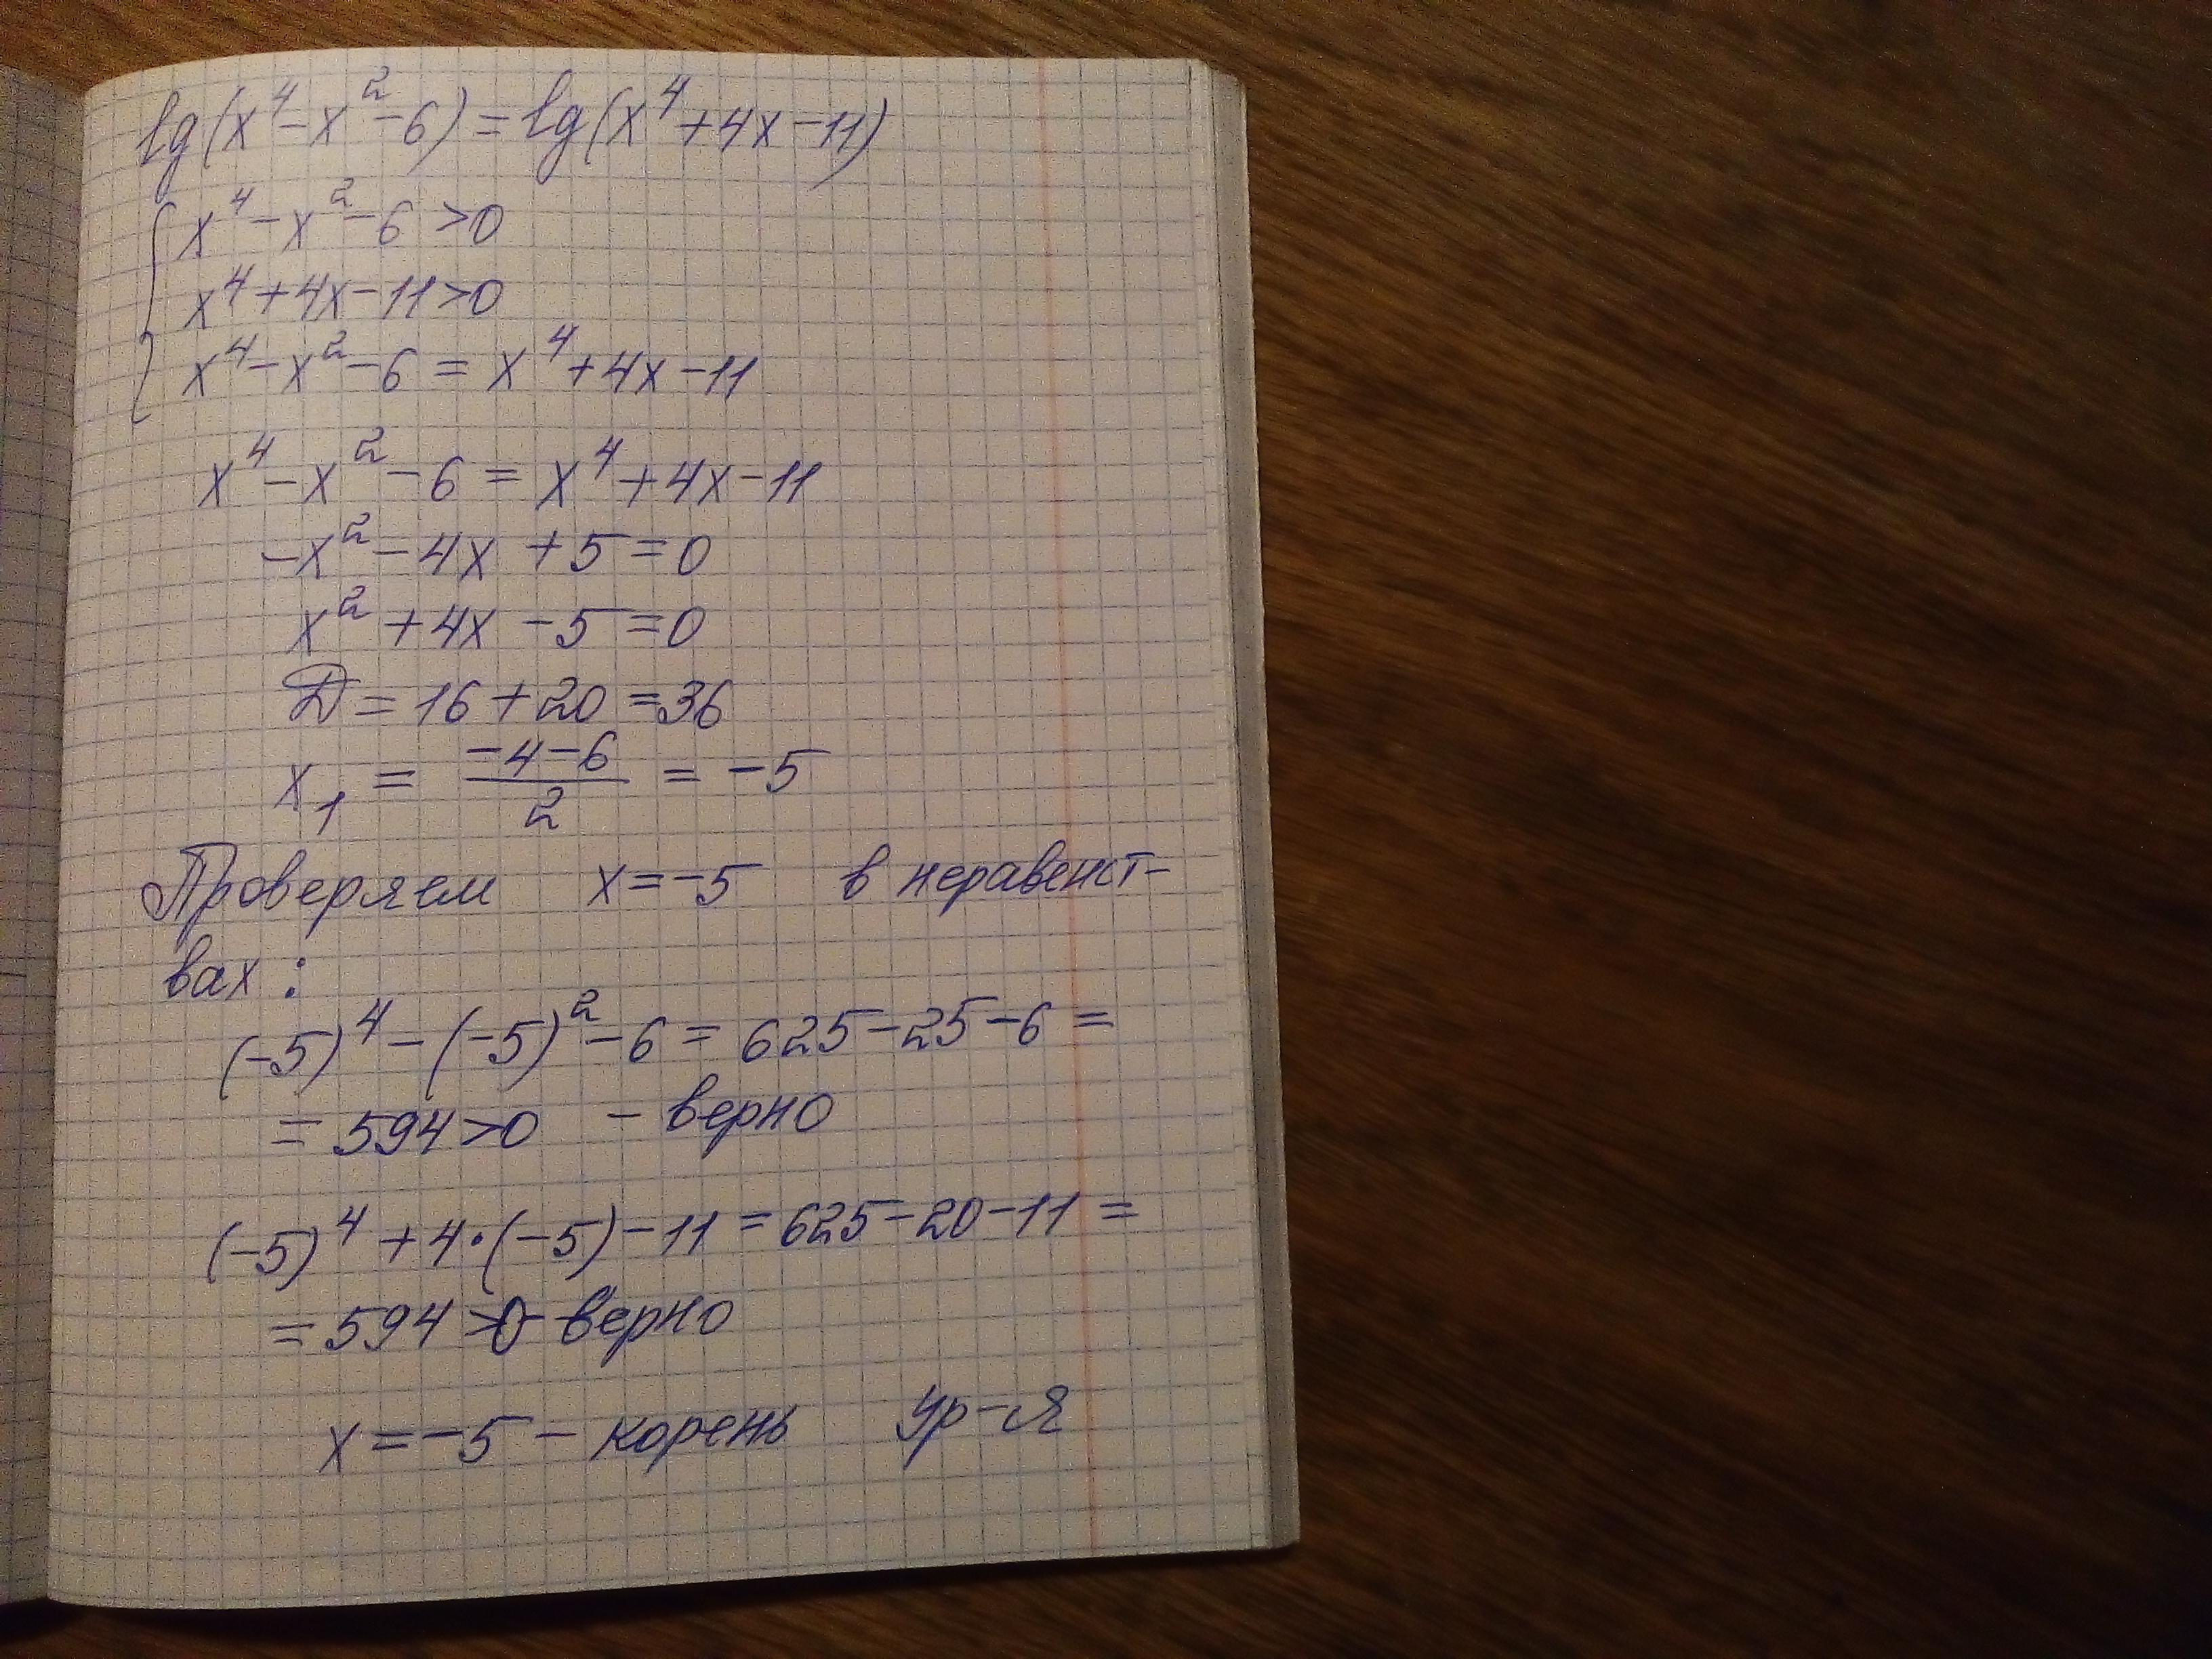 lg(x⁴-x²-6)=lg(x⁴+4x-11)
x⁴-x²-6>0
x⁴+4x-11>0
x⁴-x²-6=x⁴+4x-11
x⁴-x²-6=x⁴+4x-11
-x²-4x+5=0
x²+4x-5=0
D=16+20=36
x₁=(-4-6)/2=-5
Проверяем x=-5 в неравенст-
вах:
(-5)⁴-(-5)²-6=625-25-6=
=594>0 - верно
(-5)⁴+4·(-5)-11=625-20-11=
=594>0 - верно
x=-5 - корень ур-я